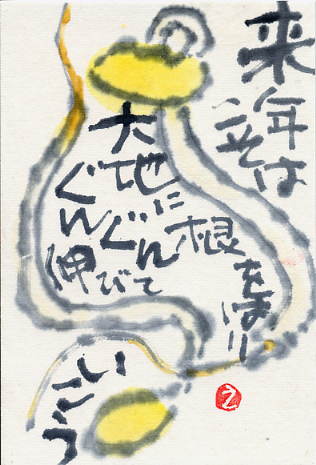 来年こそは
大地に
根をはり
ぐんぐん
伸びて
いこう